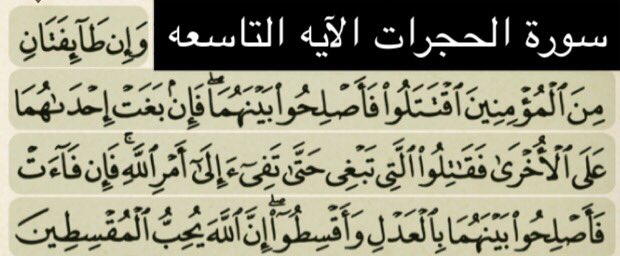 سورة الحجرات الآيه التاسعه
وَإِن طَآئِفَتَانِ
مِنَ ٱلْمُؤْمِنِينَ ٱقْتَتَلُوا۟ فَأَصْلِحُوا۟ بَيْنَهُمَا ۖ فَإِنۢ بَغَتْ إِحْدَىٰهُمَا
عَلَى ٱلْأُخْرَىٰ فَقَٰتِلُوا۟ ٱلَّتِى تَبْغِى حَتَّىٰ تَفِىٓءَ إِلَىٰٓ أَمْرِ ٱللَّهِ ۚ فَإِن فَآءَتْ
فَأَصْلِحُوا۟ بَيْنَهُمَا بِٱلْعَدْلِ وَأَقْسِطُوٓا۟ ۖ إِنَّ ٱللَّهَ يُحِبُّ ٱلْمُقْسِطِينَ